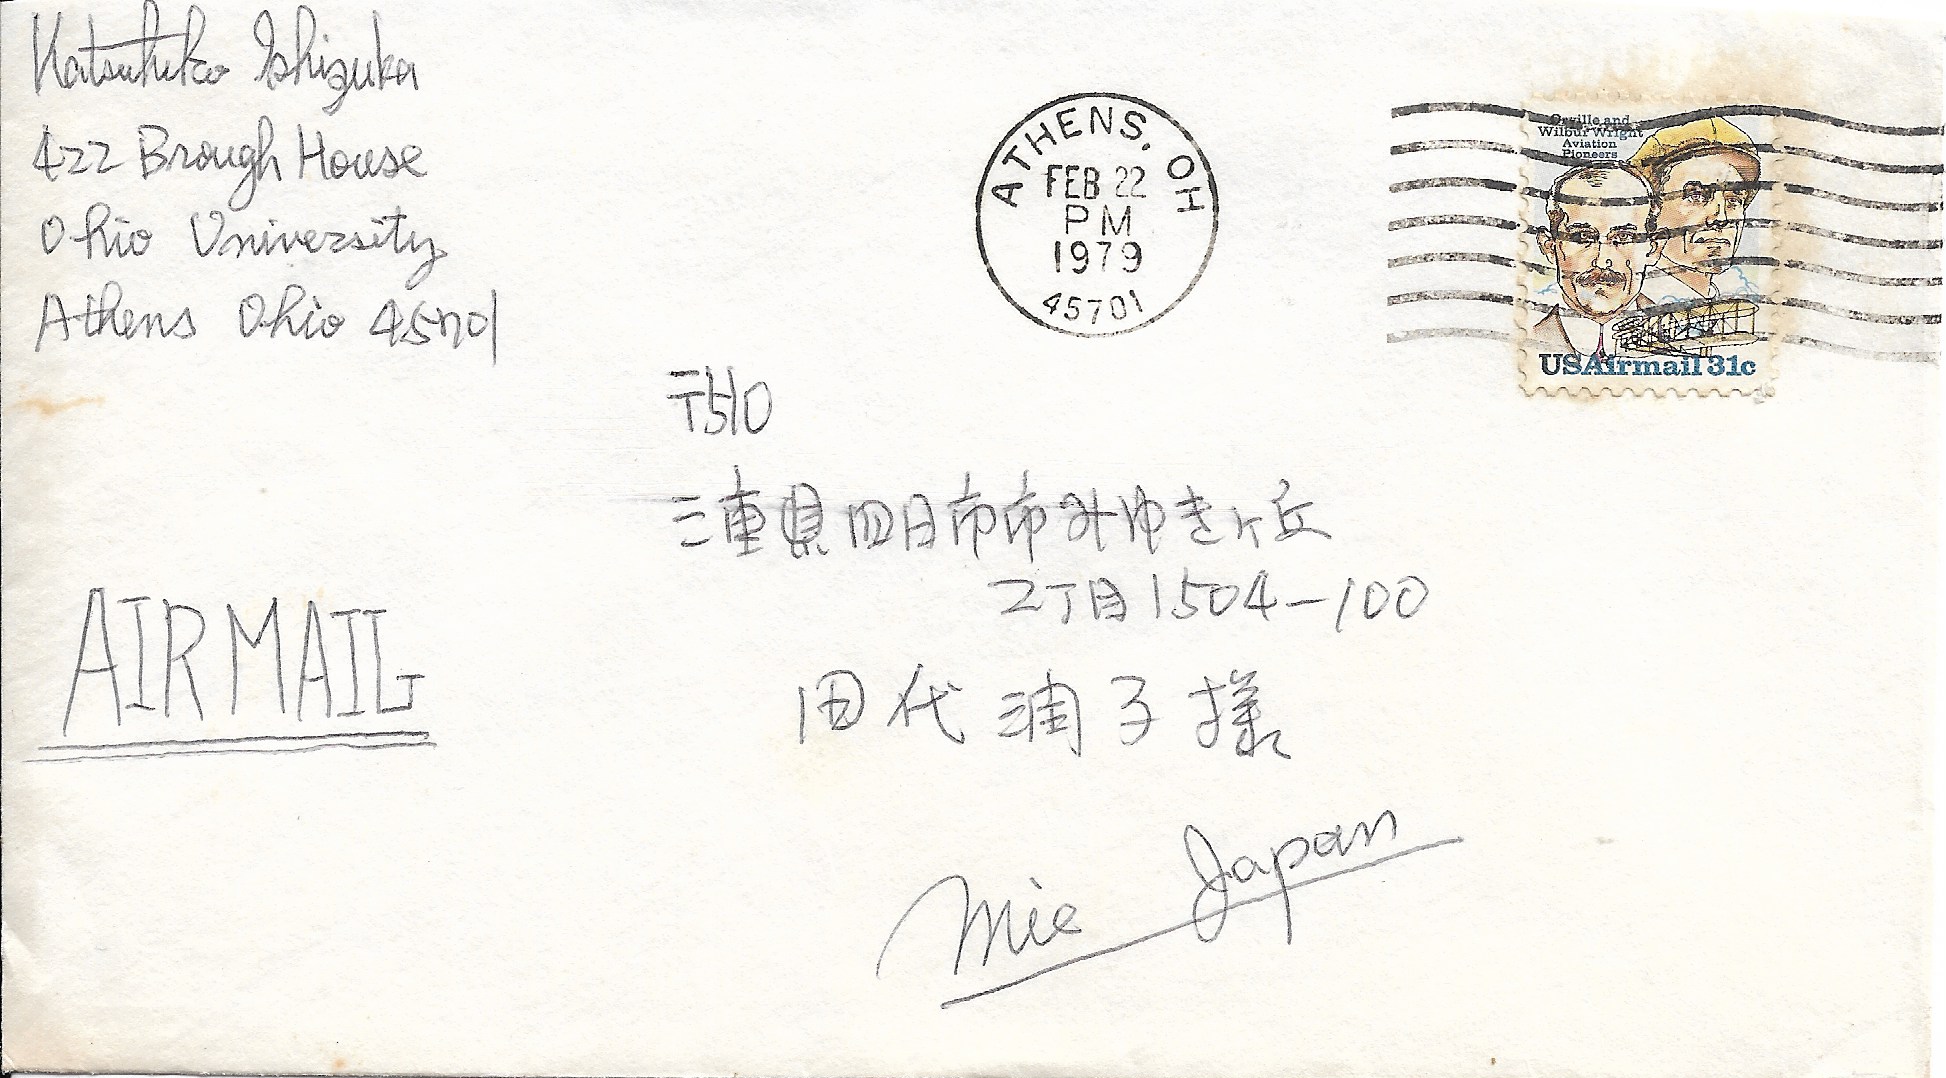 Katsuhiko Ishizuka
422 Brough House
Ohio University
Athens Ohio 45701
ATHENS, OH
FEB 22
PM
1979
45701
Orville and
Wilbur Wright
Aviation
Pioneers
USAirmail 31c
〒510
三重県四日市市みゆきヶ丘
2丁目1504-100
田代浦子様
AIRMAIL
Mie Japan